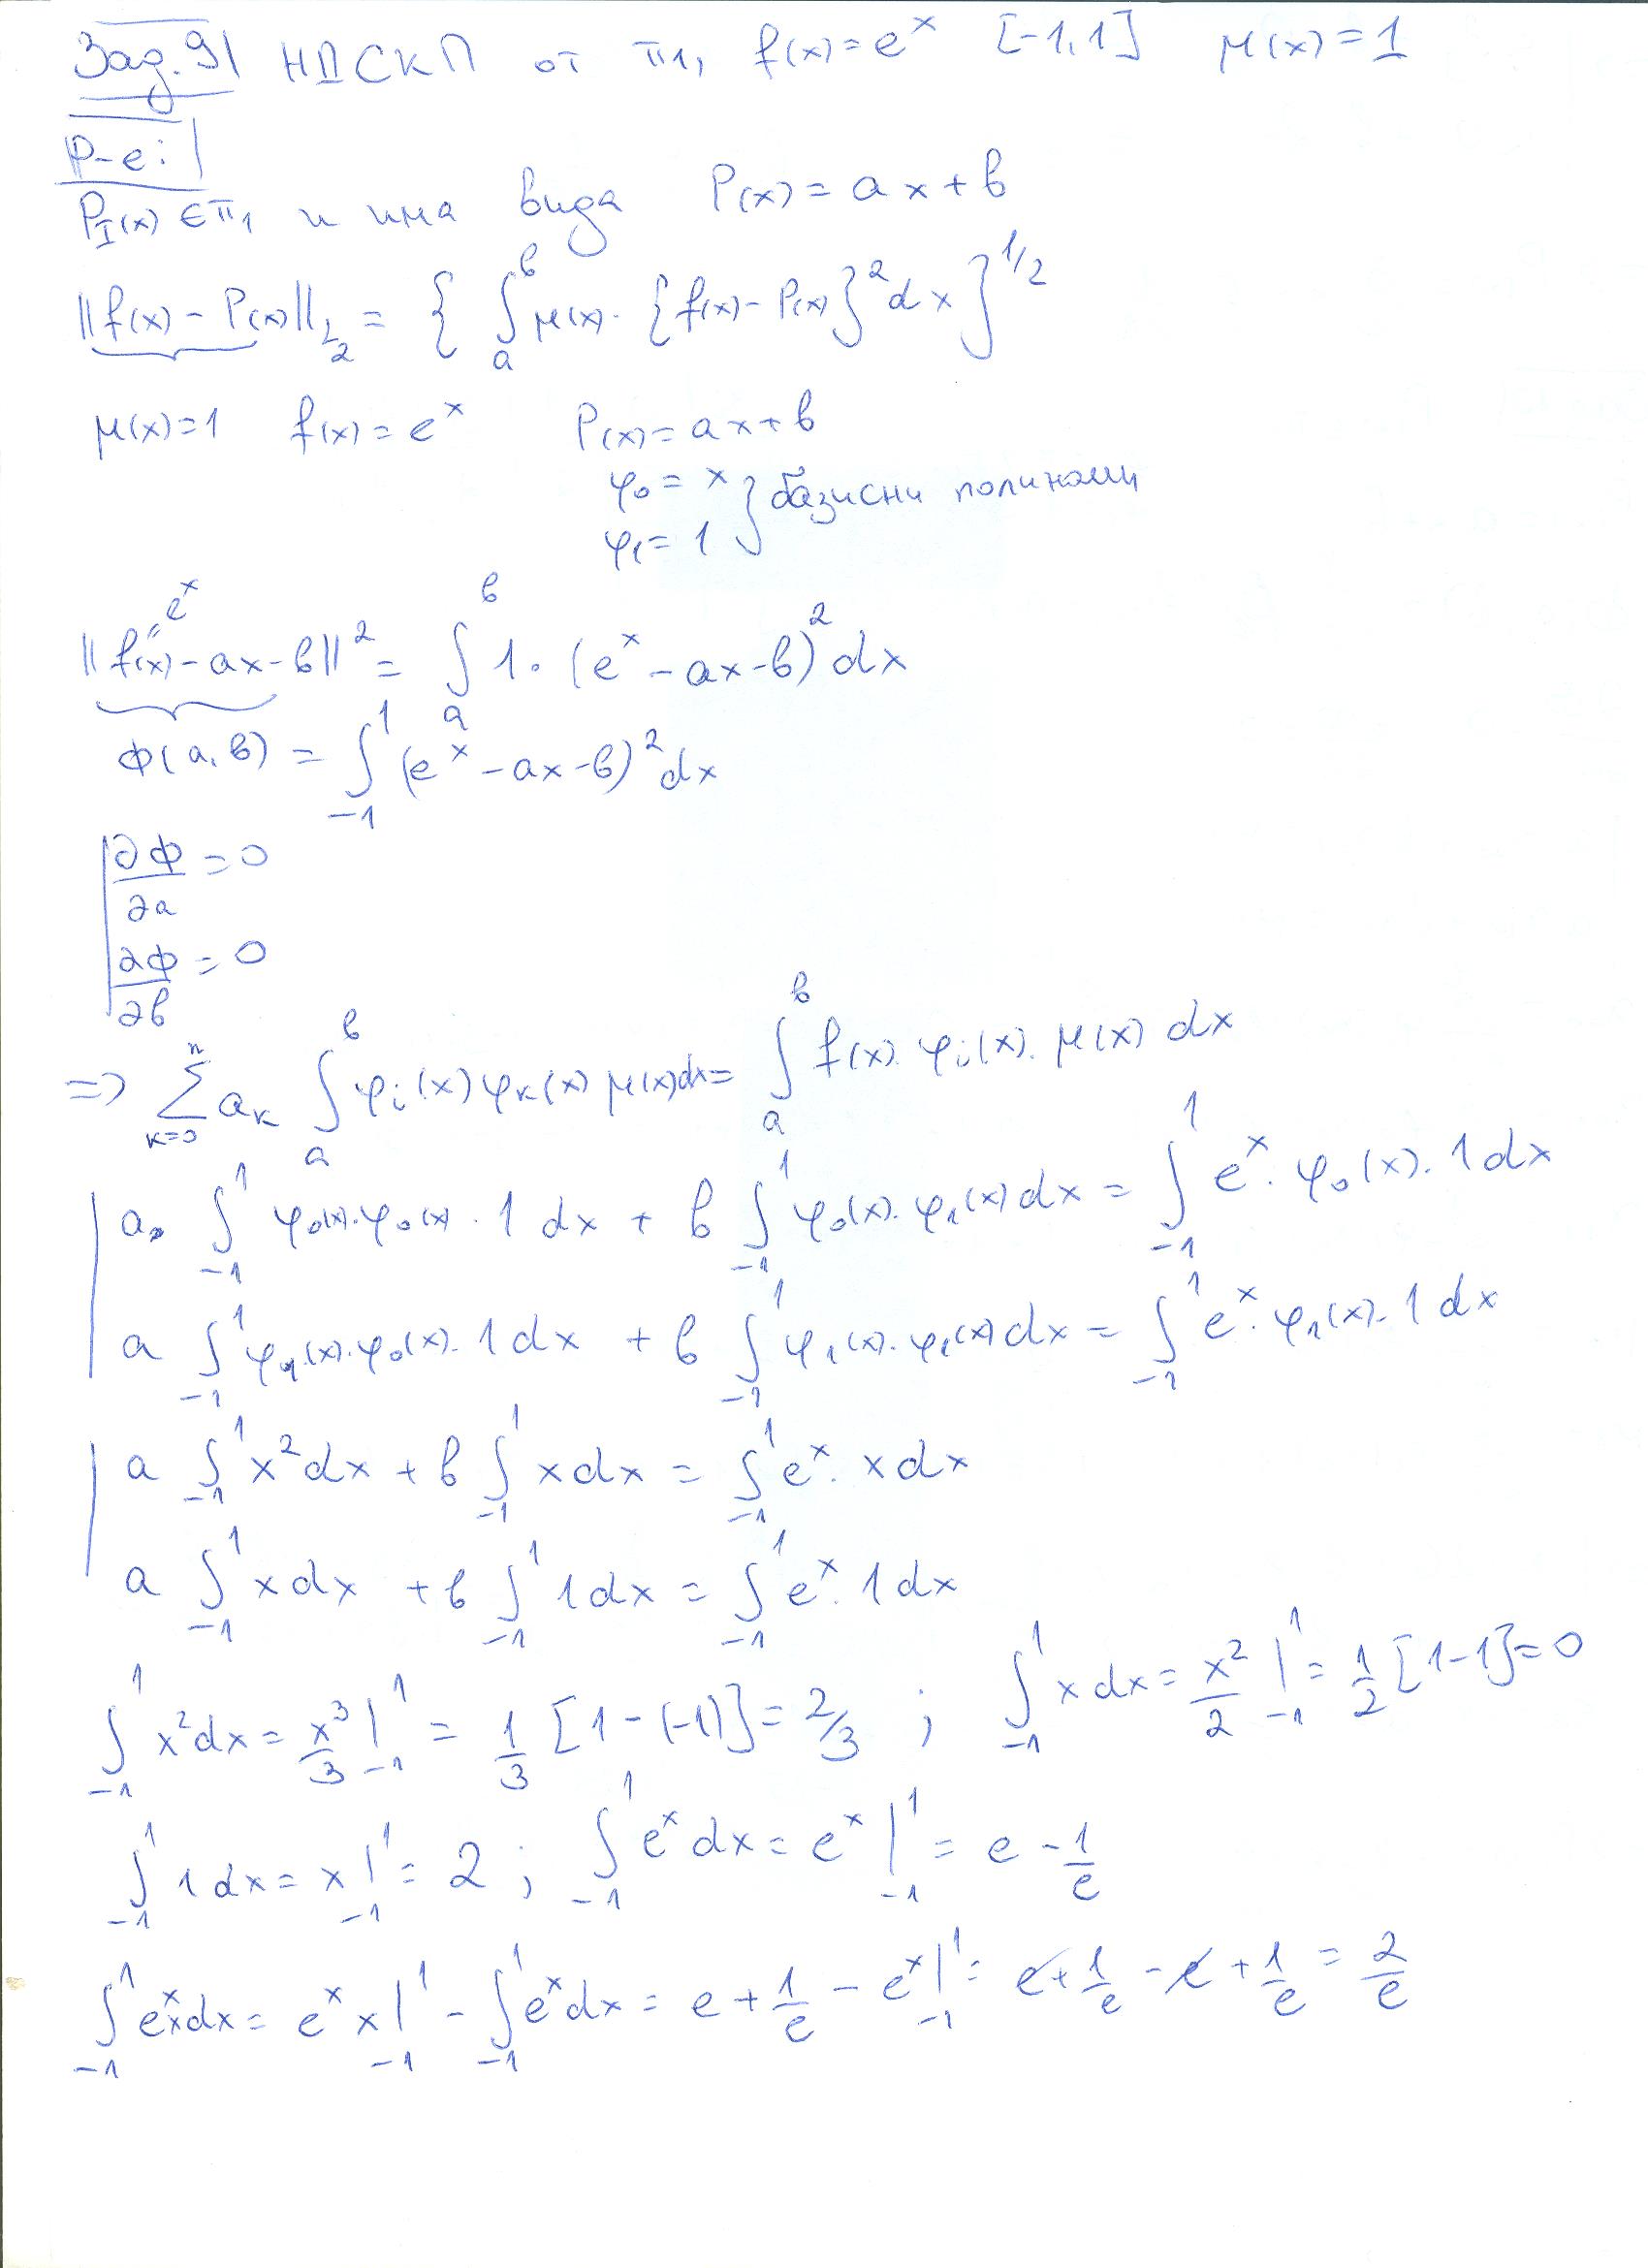 Зад. 9| НДСКП от π₁, f(x)=eˣ [-1,1] μ(x)=1
Р-е:|
P_I(x) ∈ π₁ и има вида P(x) = ax+b
||f(x) - P(x)||_L₂ = { ∫_a^b μ(x). {f(x) - P(x)}² dx }^1/2
μ(x)=1 f(x)=eˣ P(x)=ax+b
φ₀ = x } базисни полиноми
φ₁ = 1
eˣ
||f(x) - ax - b||² = ∫_a^b 1. (eˣ - ax - b)² dx
Φ(a,b) = ∫_-1^1 (eˣ - ax - b)² dx
| ∂Φ/∂a = 0
| ∂Φ/∂b = 0
=> Σ_k=0^n a_k ∫_a^b φ_i(x) φ_k(x) μ(x) dx = ∫_a^b f(x). φ_i(x). μ(x) dx
| a. ∫_-1^1 φ₀(x).φ₀(x). 1 dx + b ∫_-1^1 φ₀(x). φ₁(x) dx = ∫_-1^1 eˣ. φ₀(x). 1 dx
| a ∫_-1^1 φ₁(x).φ₀(x). 1 dx + b ∫_-1^1 φ₁(x). φ₁(x) dx = ∫_-1^1 eˣ. φ₁(x). 1 dx
| a ∫_-1^1 x² dx + b ∫_-1^1 x dx = ∫_-1^1 eˣ. x dx
| a ∫_-1^1 x dx + b ∫_-1^1 1 dx = ∫_-1^1 eˣ. 1 dx
∫_-1^1 x² dx = x³/3 |_-1^1 = 1/3 [1-(-1)] = 2/3 ; ∫_-1^1 x dx = x²/2 |_-1^1 = 1/2 [1-1] = 0
∫_-1^1 1 dx = x |_-1^1 = 2 ; ∫_-1^1 eˣ dx = eˣ |_-1^1 = e - 1/e
∫_-1^1 eˣ x dx = eˣ x |_-1^1 - ∫_-1^1 eˣ dx = e + 1/e - eˣ |_-1^1 = e + 1/e - e + 1/e = 2/e